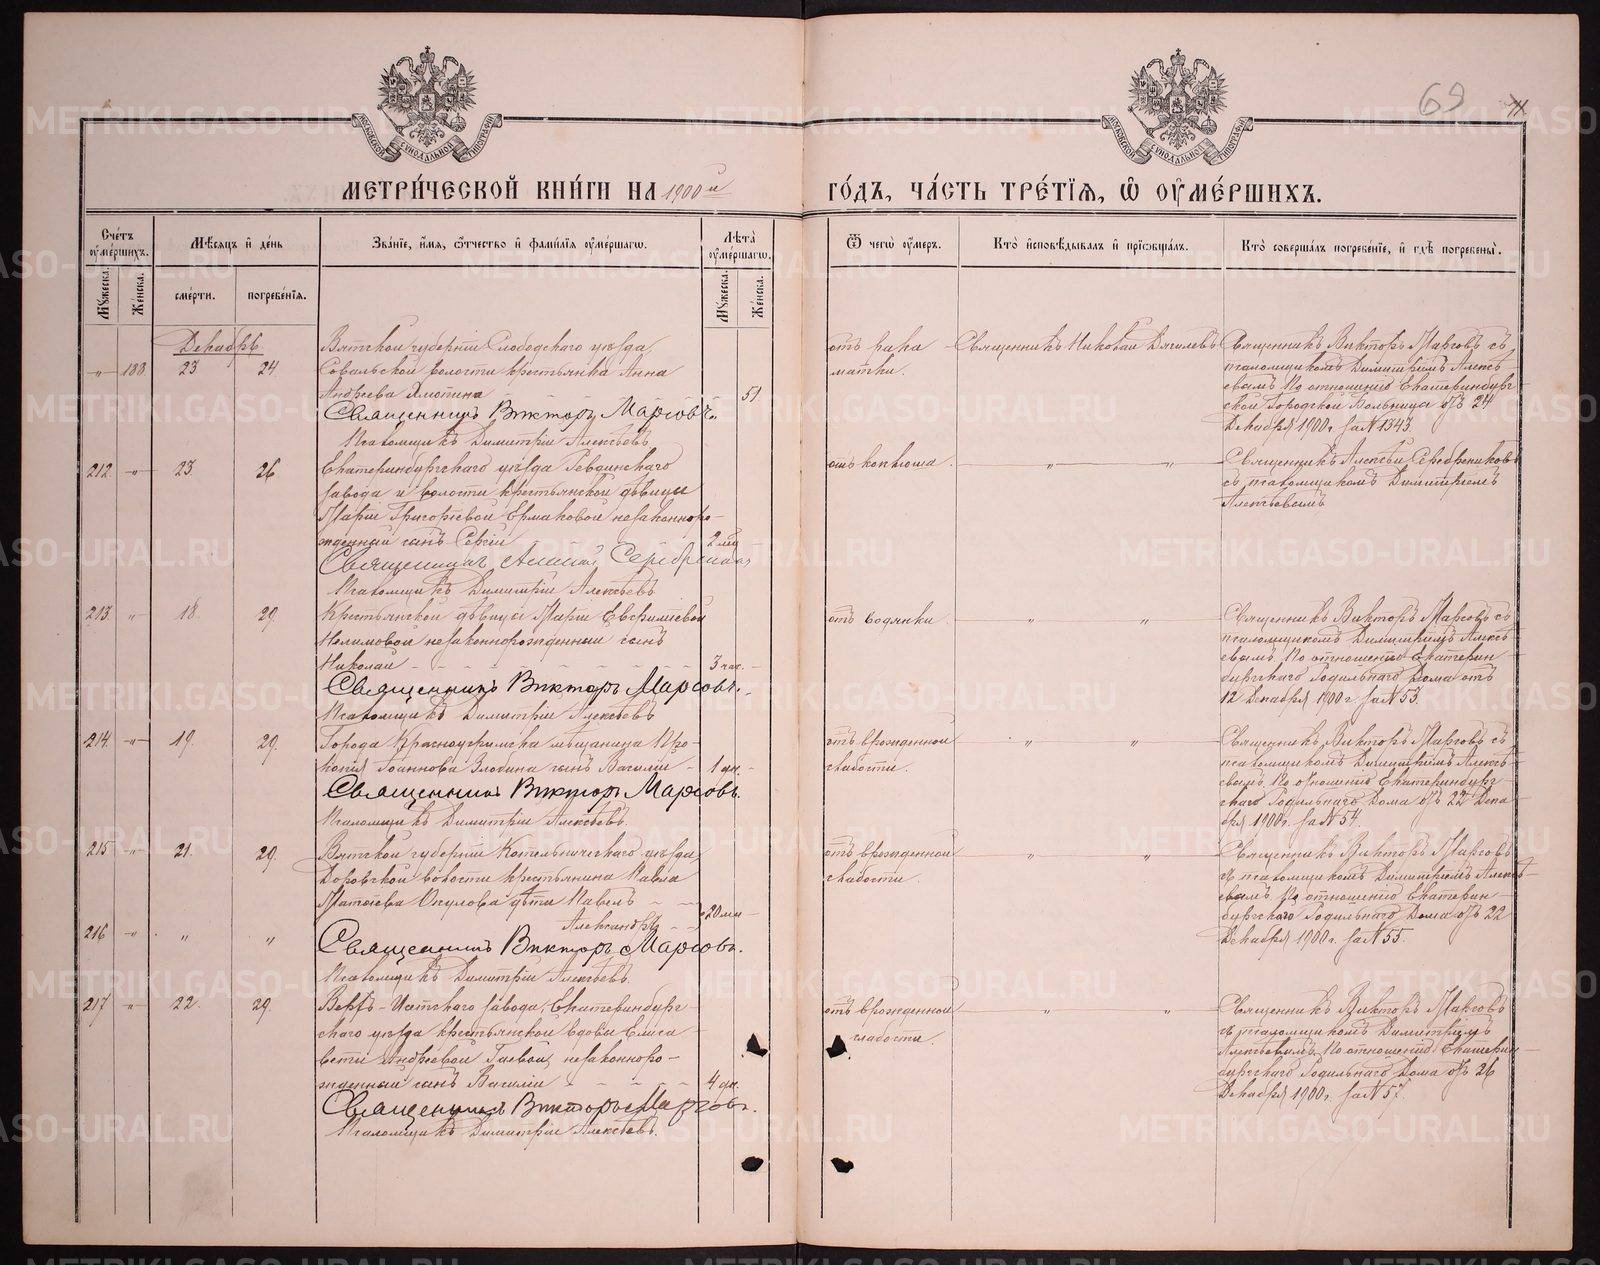 69
МЕТРИ́ЧЕСКОЙ КНИ́ГИ НА 1900й
ГО́ДЪ, ЧА́СТЬ ТРЕ́ТІЯ, Ѿ ОУ҆МЕ́РШИХЪ.
Сче́тъ оу҆ме́ршихъ.
Мꙋ́жеска.
Же́нска.
Мѣ́сѧцъ и҆ де́нь
сме́рти.
погребе́нїѧ.
Зва́нїе, и҆́мѧ, ѻ҆́тчество и҆ фами́лїѧ оу҆ме́ршагѡ.
Лѣ́та оу҆ме́ршагѡ.
Мꙋ́жеска.
Же́нска.
Ѿ чегѡ̀ оу҆́меръ.
Кто̀ и҆сповѣ́дывалъ и҆ прїѡбща́лъ.
Кто̀ соверша́лъ погребе́нїе, и҆ гдѣ̀ погребены̀.
Декабрь
" 188 23 24
Вятской губерніи Слободского уѣзда
волости крестьянка Анна
Андреева
51
Священникъ Викторъ Марсовъ.
Псаломщикъ Димитрій Алексѣевъ
отъ рака
матки.
Священникъ Николай Дягилевъ
Священникъ Викторъ Марсовъ съ
псаломщикомъ Димитріемъ Алексѣ-
евымъ по отношенію Екатеринбург-
ской Городской Больницы отъ 24
Декабря 1900 г. за № 1343.
212 " 23 26
Екатеринбургскаго уѣзда Ревдинскаго
завода и волости крестьянской дѣвицы
Маріи Григорьевой Ермаковой незаконно-
рожденный сынъ Сергій
2 мѣс
Священникъ Алексѣй Серебрениковъ
Псаломщикъ Димитрій Алексѣевъ
отъ коклюша.
" "
Священникъ Алексѣй Серебрениковъ
съ псаломщикомъ Димитріемъ
Алексѣевымъ
213. " 18. 29.
Крестьянской дѣвицы Маріи Евфиміевой
незаконнорожденный сынъ
Николай
3 час.
Священникъ Викторъ Марсовъ.
Псаломщикъ Димитрій Алексѣевъ
отъ водянки.
" "
Священникъ Викторъ Марсовъ съ
псаломщикомъ Димитріемъ Алексѣ-
евымъ по отношенію Екатерин-
бургскаго Родильнаго Дома отъ
12 Декабря 1900 г за № 53.
214. " 19. 29.
Города Красноуфимска мѣщанина Про-
копія Іоаннова Злобина сынъ Василій
1 дн.
Священникъ Викторъ Марсовъ.
Псаломщикъ Димитрій Алексѣевъ.
отъ врожденной
слабости.
" "
Священникъ Викторъ Марсовъ съ
псаломщикомъ Димитріемъ Алексѣ-
евымъ по отношенію Екатеринбург-
скаго Родильнаго Дома отъ 22 Дека-
бря 1900 г. за № 54.
215 " 21. 29.
Вятской губерніи Котельническаго уѣзда
волости крестьянина Павла
Матѳеева Окулова дѣти Павелъ
20 ми
216 " " "
Александръ
Священникъ Викторъ Марсовъ.
Псаломщикъ Димитрій Алексѣевъ.
отъ врожденной
слабости.
" "
Священникъ Викторъ Марсовъ
съ псаломщикомъ Димитріемъ Алексѣ-
евымъ по отношенію Екатерин-
бургскаго Родильнаго Дома отъ 22
Декабря 1900 г. за № 55.
217 " 22. 29.
Верхъ-Исетскаго завода, Екатеринбург-
скаго уѣзда крестьянской вдовы Елиса-
веты Андреевой незаконноро-
жденный сынъ Василій
4 дн.
Священникъ Викторъ Марсовъ.
Псаломщикъ Димитрій Алексѣевъ.
отъ врожденной
слабости.
" "
Священникъ Викторъ Марсовъ
съ псаломщикомъ Димитріемъ
Алексѣевымъ по отношенію Екатерин-
бургскаго Родильнаго Дома отъ 26
Декабря 1900 г. за № 57.
METRIKI.GASO-URAL.RU